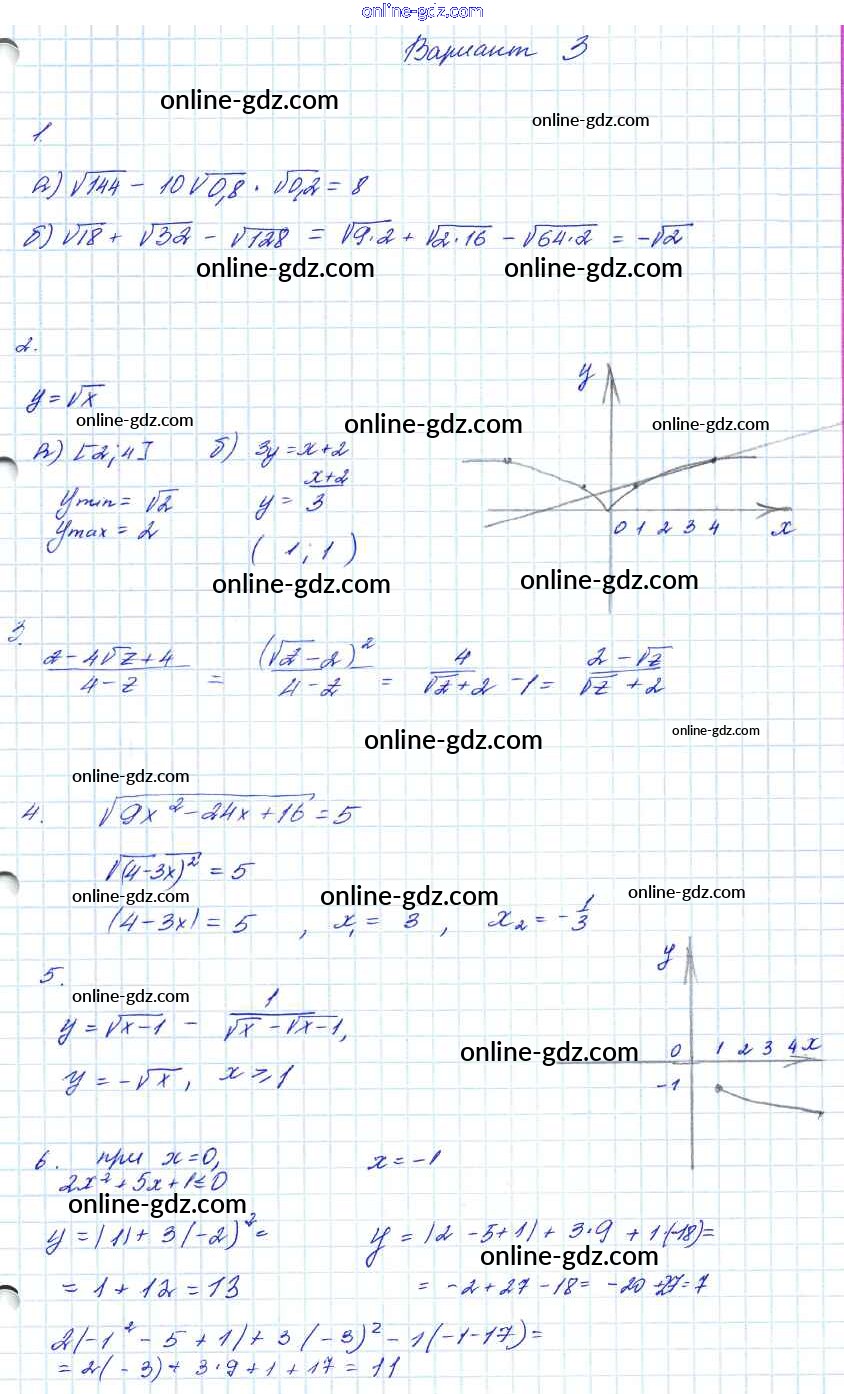 online-gdz.com
Вариант 3
online-gdz.com
online-gdz.com
1.
а) √144 - 10√0,8 · √0,2 = 8
б) √18 + √32 - √128 = √9·2 + √2·16 - √64·2 = -√2
online-gdz.com online-gdz.com
2.
y
y = √x
online-gdz.com online-gdz.com online-gdz.com
а) [2; 4] б) 3y = x+2
ymin = √2 y = x+2/3
ymax = 2
0 1 2 3 4 x
( 1 ; 1 )
online-gdz.com online-gdz.com
3.
z - 4√z + 4 / 4 - z = (√z - 2)² / 4 - z = 4 / √z + 2 - 1 = 2 - √z / √z + 2
online-gdz.com online-gdz.com
online-gdz.com
4. √9x² - 24x + 16 = 5
√(4-3x)² = 5
online-gdz.com online-gdz.com online-gdz.com
|4 - 3x| = 5 , x₁ = 3 , x₂ = -1/3
5.
y
online-gdz.com
y = √x-1 - 1 / √x - √x-1,
online-gdz.com
0 1 2 3 4 x
y = -√x, x ⩾ 1
-1
6. при x=0, x = -1
2x² + 5x + 1 ≤ 0
online-gdz.com
y = |1| + 3(-2)² = y = |2 - 5 + 1| + 3·9 + 1·(-18) =
online-gdz.com
= 1 + 12 = 13 = -2 + 27 - 18 = -20 + 27 = 7
2(-1² - 5 + 1) + 3(-3)² - 1(-1-17) =
= 2(-3) + 3·9 + 1 + 17 = 11
online-gdz.com